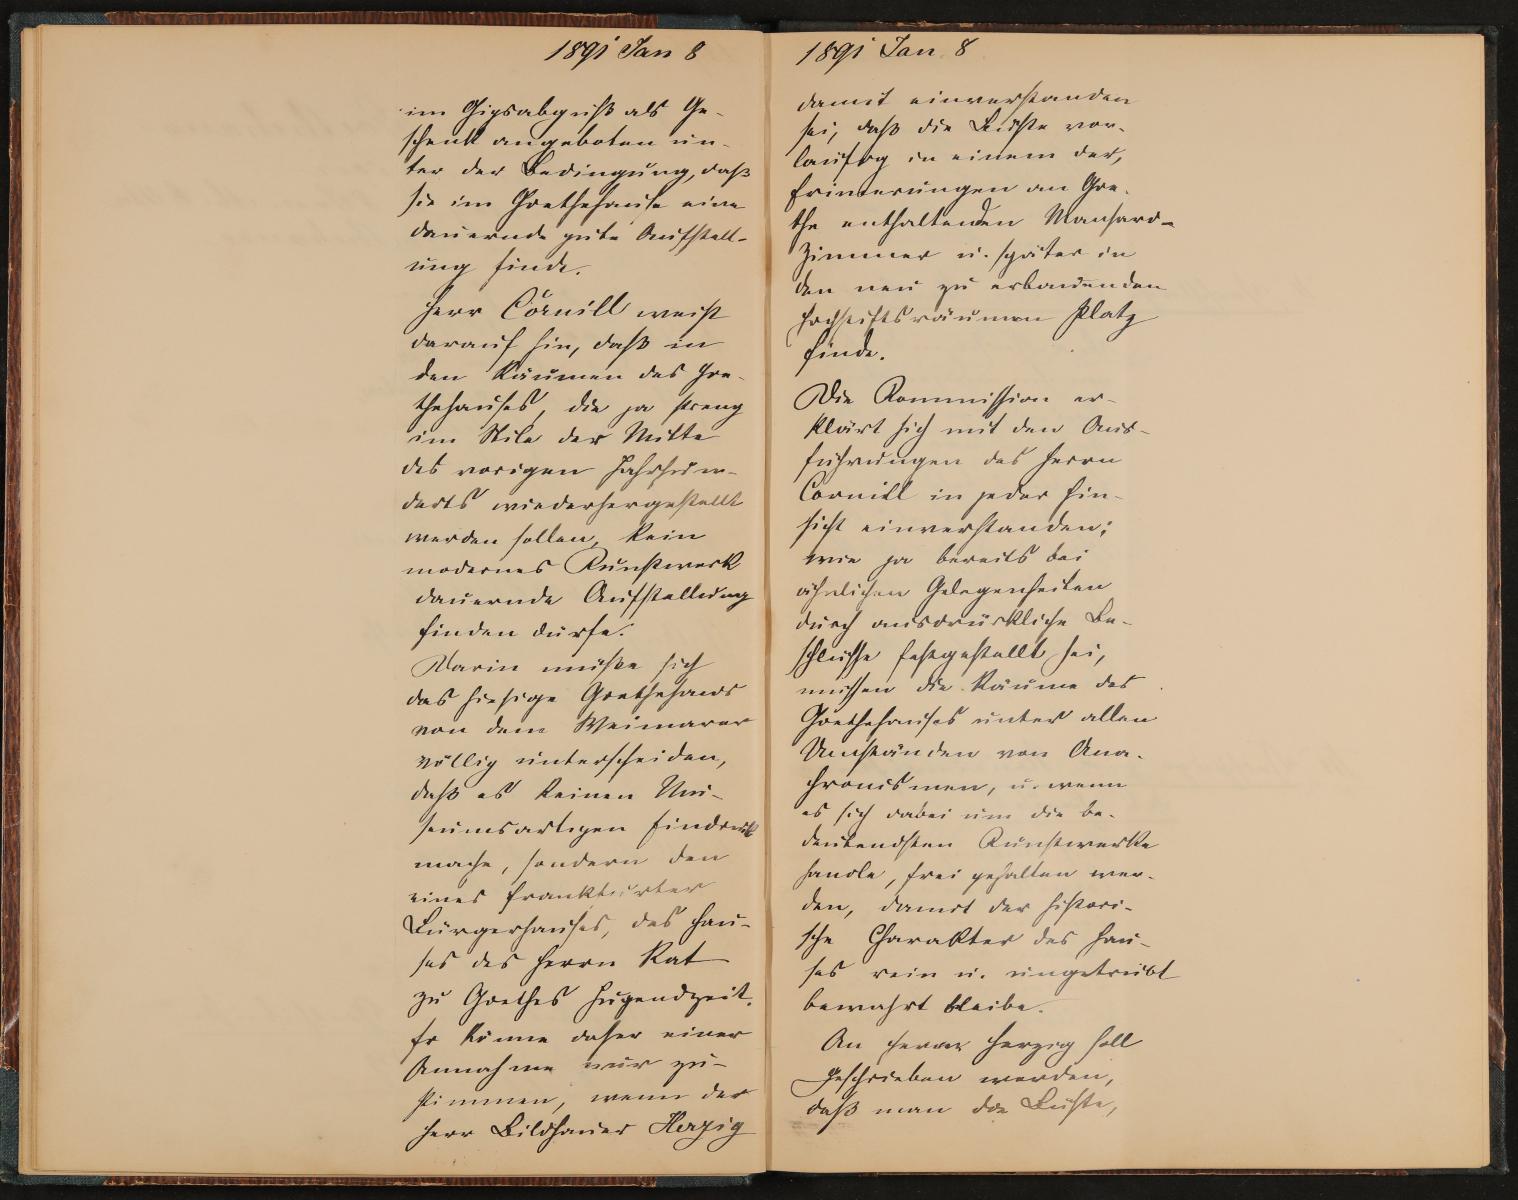 1891 Jan 8
im Gipsabguß als Ge-
schenk angeboten un-
ter der Bedingung, daß
sie im Goethehause eine
dauernde gute Aufstell-
ung finde.
Herr Cornill weist
darauf hin, daß in
den Räumen des Goe-
thehauses, die ja streng
im Stile der Mitte
des vorigen Jahrhun-
derts wiederhergestellt
werden sollen, kein
modernes Kunstwerk
dauernde Aufstellung
finden dürfe.
Darin müße sich
das hiesige Goethehaus
von dem Weimarer
völlig unterscheiden,
daß es keinen Mu-
seumsartigen Eindruck
mache, sondern den
eines Frankfurter
Bürgerhauses, des Hau-
ses des Herrn Rat
zu Goethes Jugendzeit.
Er könne daher einer
Annahme nur zu-
stimmen, wenn der
Herr Bildhauer Herzig
1891 Jan. 8
damit einverstanden
sei, daß die Büste vor-
laufig in einem der,
Erinnerungen an Goe-
the enthaltenden Mansard-
zimmer u. später in
den neu zu erbauenden
Hochstiftsräumen Platz
finde.
Die Kommission er-
klärt sich mit den Aus-
führungen des Herrn
Cornill in jeder Hin-
sicht einverstanden;
wie ja bereits bei
ähnlichen Gelegenheiten
durch ausdrückliche Be-
schlüsse festgestellt sei,
müssen die Räume des
Goethehauses unter allen
Umständen von Ana-
chronismen, u. wenn
es sich dabei um die be-
deutendsten Kunstwerke
handle, frei gehalten wer-
den, damit der histori-
sche Charakter des Hau-
ses rein u. ungetrübt
bewahrt bleibe.
An Herrn Herzig soll
geschrieben werden,
daß man die Büste,